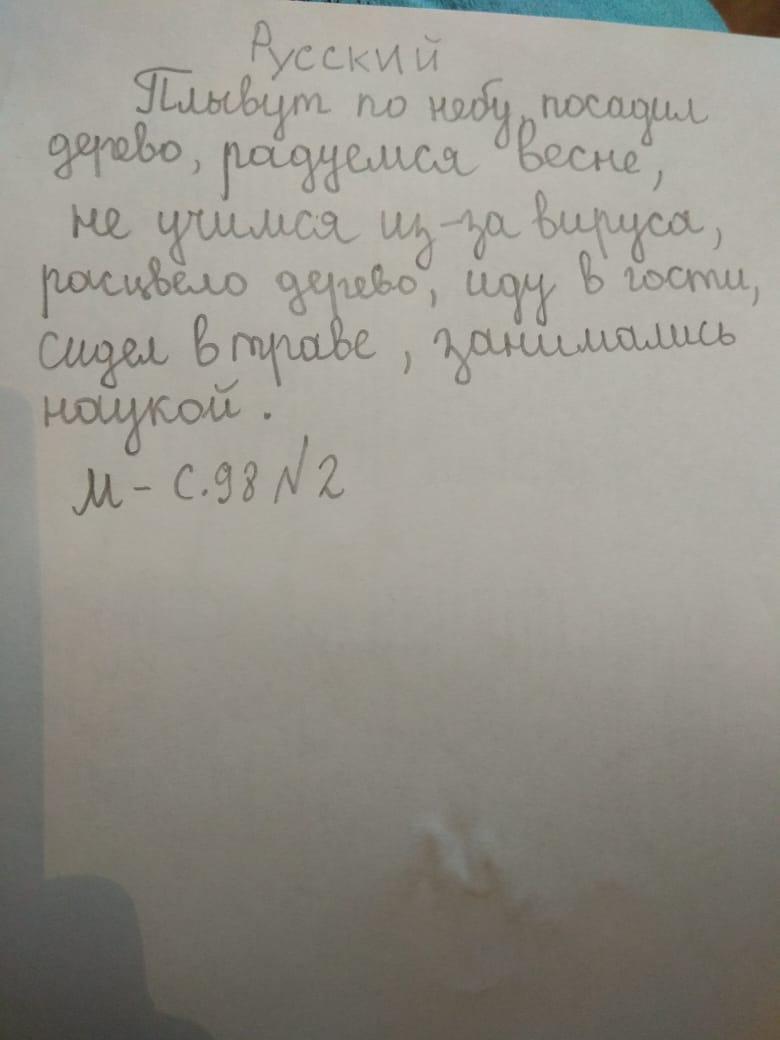 Русский
Плывут по небу, посадил
дерево, радуемся весне,
не учимся из-за вируса,
расцвело дерево, иду в гости,
сидел в траве, занимались
наукой.
М - с.98 №2